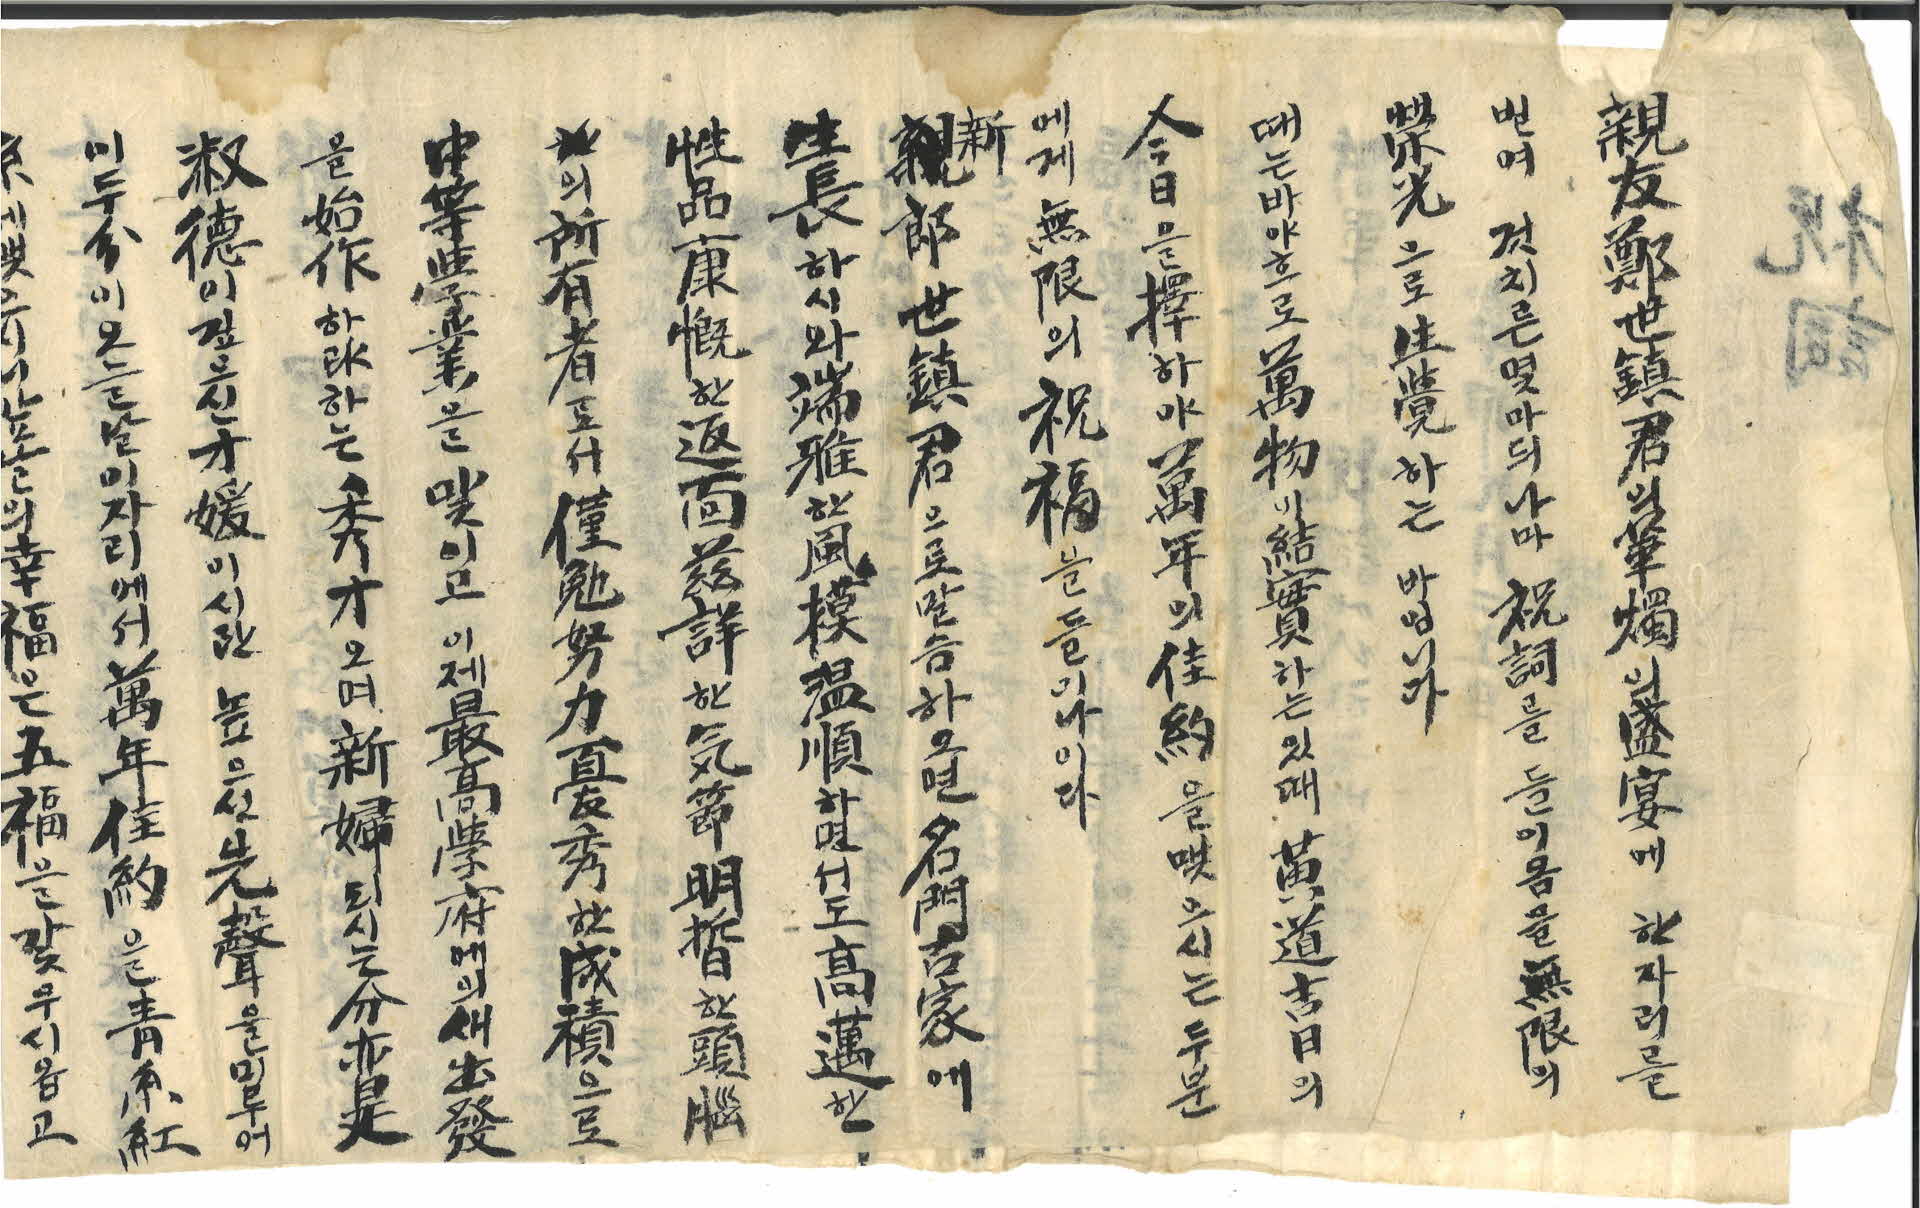 祝詞
親友鄭世鎮君의華燭의盛宴에 한자리를
빈여 것치른몇마듸나마 祝詞를 들이옴을無限의
榮光으로生覺하는 바임니다
때는바야흐로萬物이結實하는있때 黃道吉日의
今日을擇하야萬年의佳約을맷으시는두분
에게 無限의祝福늘들이나이다
新郎世鎮君으로말슴하오면名門古家에
生長하시와端雅한風模温順하면서도高邁한
性品康慨한返面慈詳한気節明晳한頭腦
의所有者도서僅勉努力憂秀한成積으로
中等學業을맟이고이제最高學府에의새出發
을始作하랴하는秀才오며新婦되시는分亦是
淑德이깊으신才媛이시란높으신先聲을믿루어
이두分이오늘날이자리에서萬年佳約을靑糸紅
의幸福은五福을갖우시옵고